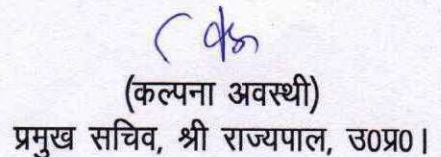 (कल्पना अवस्थी)
प्रमुख सचिव, श्री राज्यपाल, उ0प्र0।